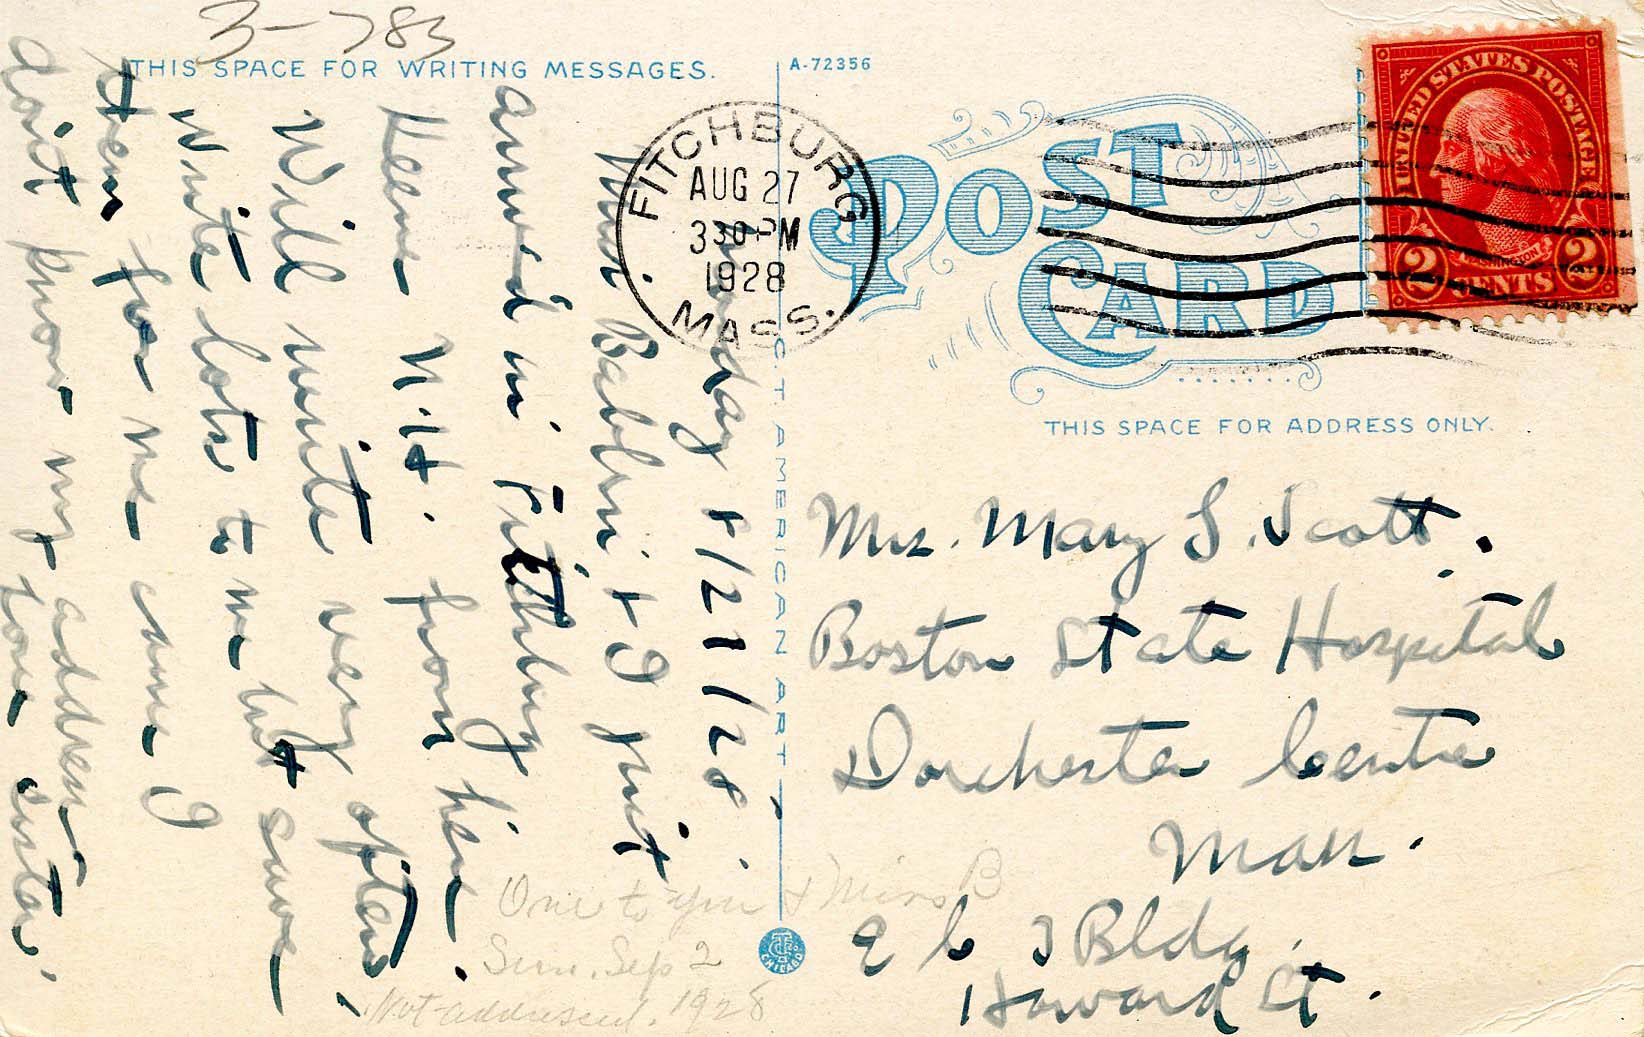 3-783
THIS SPACE FOR WRITING MESSAGES.
A-72356
POST CARD
FITCHBURG
AUG 27
330 PM
1928
MASS.
UNITED STATES POSTAGE
WASHINGTON
2 CENTS 2
THIS SPACE FOR ADDRESS ONLY.
C.T. AMERICAN ART
C.T. & CO. CHICAGO
Monday 8/27/28
Miss Babbin & I just
arrived in Fitchburg
Keene N.H. from here.
Will write very often,
Write lots to me but save
them for me cause I
don't know my address
don't know your sister.
Mrs. Mary S. Scott.
Boston State Hospital
Dorchester Centre
Mass.
E 6 3 Bldg.
Howard St.
One to you & Miss B
Sun. Sep 2
Not addressed. 1928